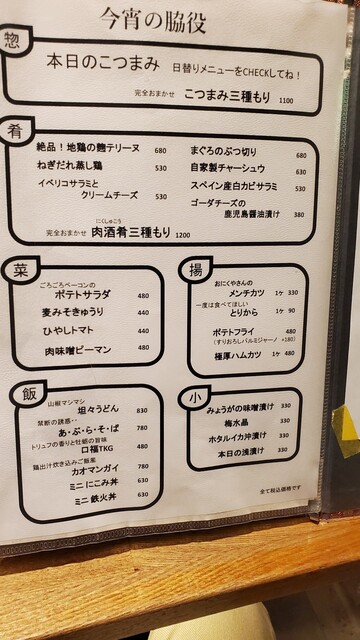 今宵の脇役
惣
本日のこつまみ 日替りメニューをCHECKしてね!
完全おまかせ こつまみ三種もり 1100
肴
絶品!地鶏の麹テリーヌ 680
ねぎだれ蒸し鶏 530
イベリコサラミと
クリームチーズ 530
まぐろのぶつ切り 680
自家製チャーシュウ 530
スペイン産白カビサラミ 530
ゴーダチーズの
鹿児島醤油漬け 380
にくしゅこう
完全おまかせ 肉酒肴三種もり 1200
菜
ごろごろベーコンの
ポテトサラダ 480
麦みそきゅうり 440
ひやしトマト 440
肉味噌ピーマン 480
揚
おにくやさんの
メンチカツ 1ケ 330
一度は食べてほしい
とりから 1ケ 90
ポテトフライ 480
(すりおろしパルミジャーノ +180)
極厚ハムカツ 1ケ 480
飯
山椒マシマシ
坦々うどん 830
禁断の誘惑・・
あ・ぶ・ら・そ・ば 780
トリュフの香りと牡蠣の旨味
口福TKG 480
鶏出汁炊き込みご飯風
カオマンガイ 780
ミニにこみ丼 630
ミニ鉄火丼 630
小
みょうがの味噌漬け 330
梅水晶 330
ホタルイカ沖漬け 330
本日の浅漬け 330
全て税込価格です